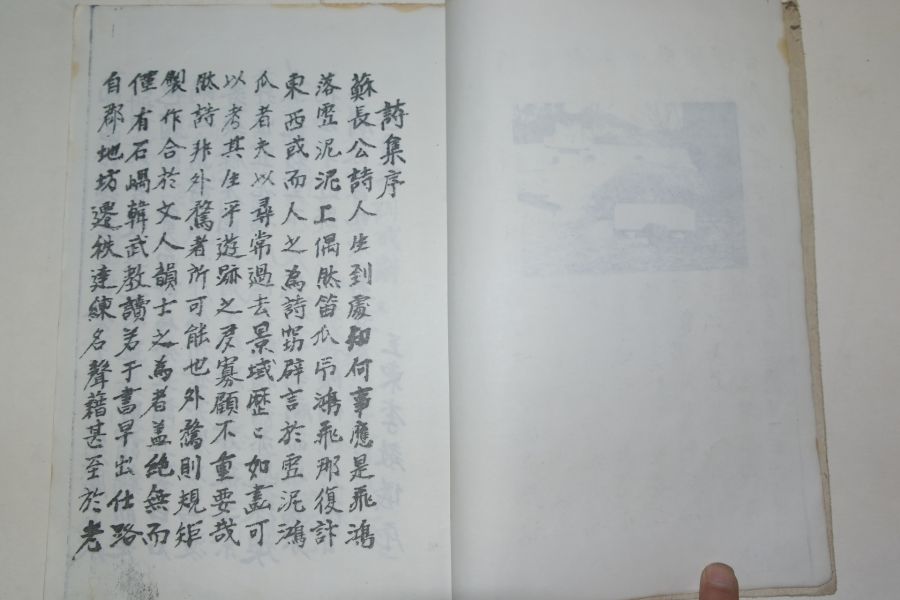 詩集序
蘇長公詩人生到處知何事應是飛鴻
落雪泥泥上偶然留爪帋鴻飛那復計
東西或而人之為詩寫辟言於雪泥鴻
爪者夫以尋常過去景域歷〻如畵可
以考其生平遊跡之多寡顧不重要哉
然詩非外騖者所可能也外騖則規矩
製作合於文人韻士之為者盖絶無而
僅有石嵎韓武教讀若于書早出仕路
自郡地坊遷秩達練名聲藉甚至於老